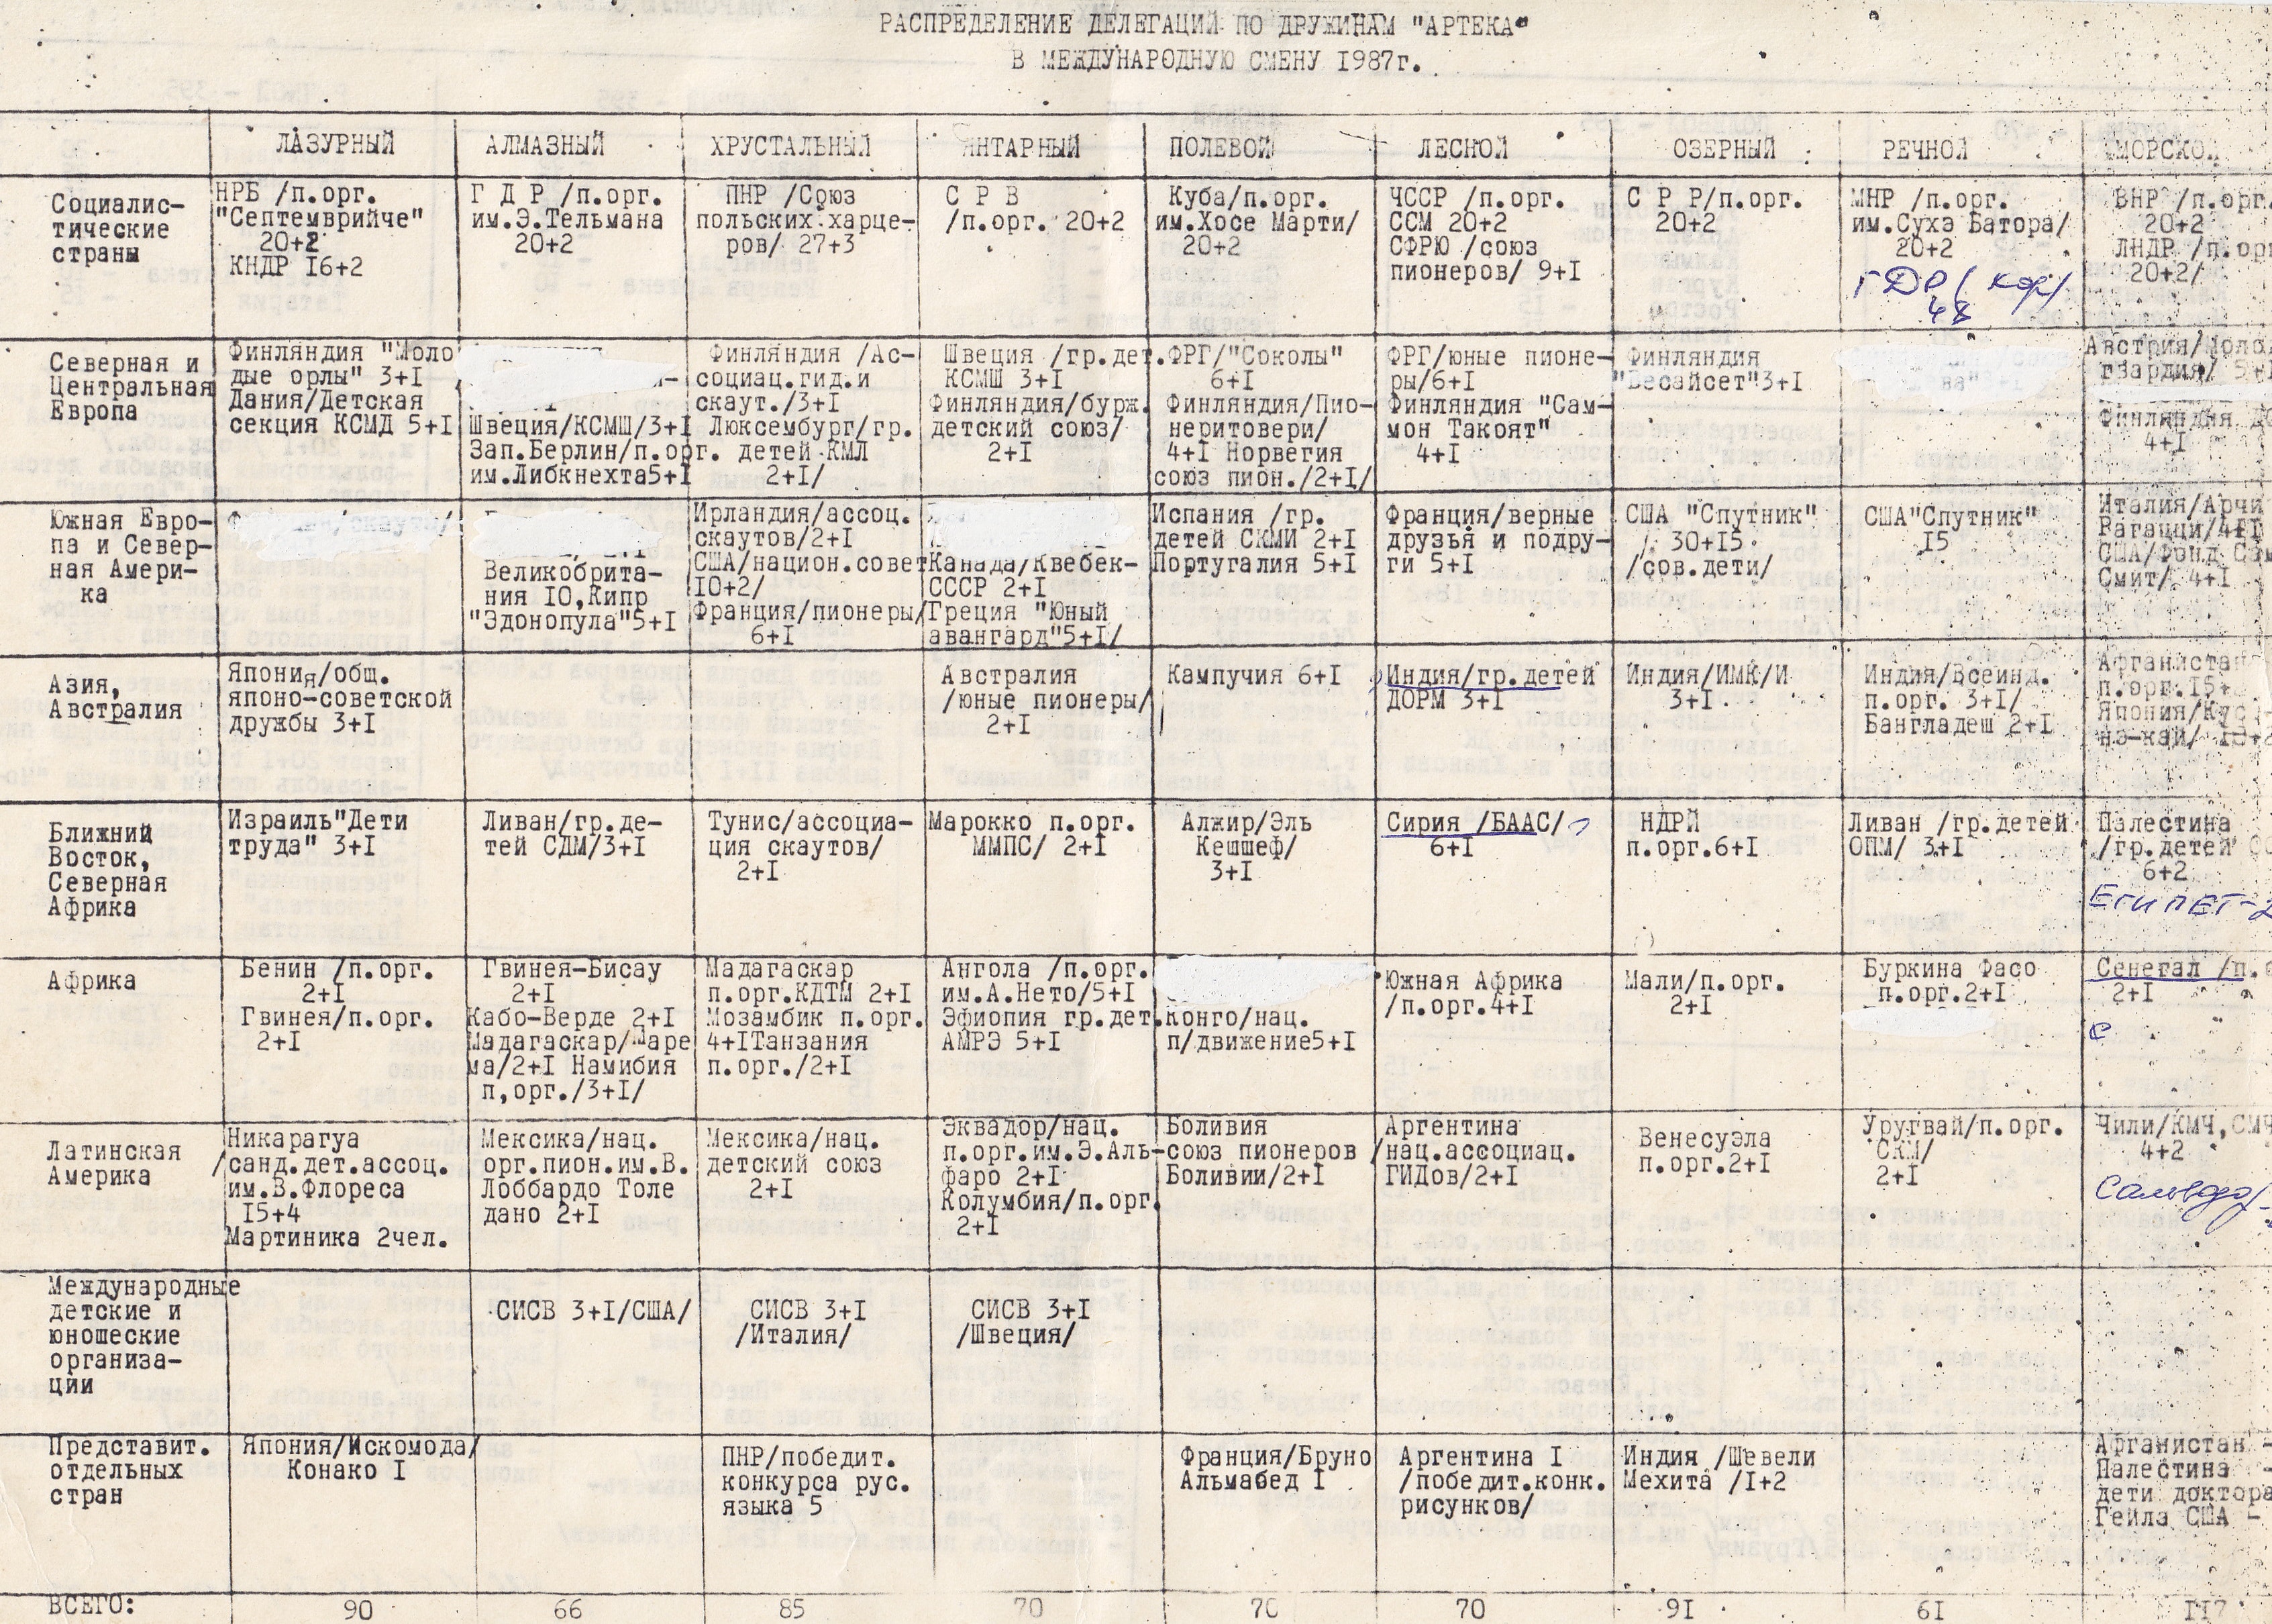 РАСПРЕДЕЛЕНИЕ ДЕЛЕГАЦИЙ ПО ДРУЖИНАМ "АРТЕКА"
В МЕЖДУНАРОДНУЮ СМЕНУ I987г.
ЛАЗУРНЫЙ
АЛМАЗНЫЙ
ХРУСТАЛЬНЫЙ
ЯНТАРНЫЙ
ПОЛЕВОЙ
ЛЕСНОЙ
ОЗЕРНЫЙ
РЕЧНОЙ
МОРСКОЙ
Социалис-
тические
страны
НРБ /п.орг.
"Септемврийче"
20+2
КНДР I6+2
Г Д Р /п.орг.
им.Э.Тельмана
20+2
ПНР /Союз
польских харце-
ров/ 27+3
С Р В
/п.орг. 20+2
Куба/п.орг.
им.Хосе Марти/
20+2
ЧССР /п.орг.
ССМ 20+2
СФРЮ /союз
пионеров/ 9+I
С Р Р/п.орг.
20+2
МНР /п.орг.
им.Сухэ Батора/
20+2
ГДР/ хор/
ВНР /п.орг.
20+2
ЛНДР /п.орг
20+2/
Северная и
Центральная
Европа
Финляндия "Моло
дые орлы" 3+I
Дания/Детская
секция КСМД 5+I
Швеция/КСМШ/3+I
Зап.Берлин/п.орг.
им.Либкнехта5+I
Финляндия /Ас-
социац.гид.и
скаут./3+I
Люксембург/гр.
детей КМЛ
2+I/
Швеция /гр.дет.
КСМШ 3+I
Финляндия/бурж.
детский союз/
2+I
ФРГ/"Соколы"
6+I
Финляндия/Пио-
неритовери/
4+I Норвегия
союз пион./2+I/
ФРГ/юные пионе-
ры/6+I
Финляндия "Сам-
мон Такоят"
4+I
Финляндия
"Весайсет"3+I
Австрия/Молод
гвардия/ 5+I
Финляндия
4+I
Южная Евро-
па и Север-
ная Амери-
ка
Великобрита-
ния IO,Кипр
"Эдонопула"5+I
Ирландия/ассоц.
скаутов/2+I
США/национ.совет
IO+2/
Франция/пионеры/
6+I
Канада/Квебек-
СССР 2+I
Греция "Юный
авангард"5+I/
Испания /гр.
детей СКМИ 2+I
Португалия 5+I
Франция/верные
друзья и подру-
ги 5+I
США "Спутник"
/ 30+I5
/сов.дети/
США"Спутник"
I5
Италия/Арчи
Рагацци/4+I
США/Фонд Сам
Смит/ 4+I
Азия,
Австралия
Япония/общ.
японо-советской
дружбы 3+I
Австралия
/юные пионеры/
2+I
Кампучия 6+I
Индия/гр.детей
ДОРМ 3+I
Индия/ИМК/И
3+I
Индия/Всеинд.
п.орг. 3+I/
Бангладеш 2+I
Афганистан
п.орг.I5+
Япония/Кус
Ближний
Восток,
Северная
Африка
Израиль"Дети
труда" 3+I
Ливан/гр.де-
тей СДМ/3+I
Тунис/ассоциа-
ция скаутов/
2+I
Марокко п.орг.
ММПС/ 2+I
Алжир/Эль
Кешшеф/
3+I
Сирия /БААС/
6+I
НДРЙ
п.орг.6+I
Ливан /гр.детей
ОПМ/ 3+I
Палестина
/гр.детей ОО
6+2
ЕГИПЕТ-2
Африка
Бенин /п.орг.
2+I
Гвинея/п.орг.
2+I
Гвинея-Бисау
2+I
Кабо-Верде 2+I
Мадагаскар/Маре
ма/2+I Намибия
п,орг./3+I/
Мадагаскар
п.орг.КДТМ 2+I
Мозамбик п.орг.
4+IТанзания
п.орг./2+I
Ангола /п.орг.
им.А.Нето/5+I
Эфиопия гр.дет.
АМРЭ 5+I
Конго/нац.
п/движение5+I
Южная Африка
/п.орг.4+I
Мали/п.орг.
2+I
Буркина Фасо
п.орг.2+I
Сенегал /п.о
2+I
с
Латинская
Америка
Никарагуа
/санд.дет.ассоц.
им.В.Флореса
I5+4
Мартиника 2чел.
Мексика/нац.
орг.пион.им.В.
Лоббардо Толе
дано 2+I
Мексика/нац.
детский союз
2+I
Эквадор/нац.
п.орг.им.Э.Аль-
фаро 2+I
Колумбия/п.орг.
2+I
Боливия
союз пионеров
Боливии/2+I
Аргентина
/нац.ассоциац.
ГИДов/2+I
Венесуэла
п.орг.2+I
Уругвай/п.орг.
СКМ/
2+I
Чили/КМЧ,СМЧ
4+2
Сальвадо/
Международные
детские и
юношеские
организа-
ции
СИСВ 3+I/США/
СИСВ 3+I
/Италия/
СИСВ 3+I
/Швеция/
Представит.
отдельных
стран
Япония/Искомода/
Конако I
ПНР/победит.
конкурса рус.
языка 5
Франция/Бруно
Альмабед I
Аргентина I
/победит.конк.
рисунков/
Индия /Шевели
Мехита /I+2
Афганистан -
Палестина -
дети доктора
Гейла США -
ВСЕГО:
90
66
85
70
70
70
9I
6I
II7